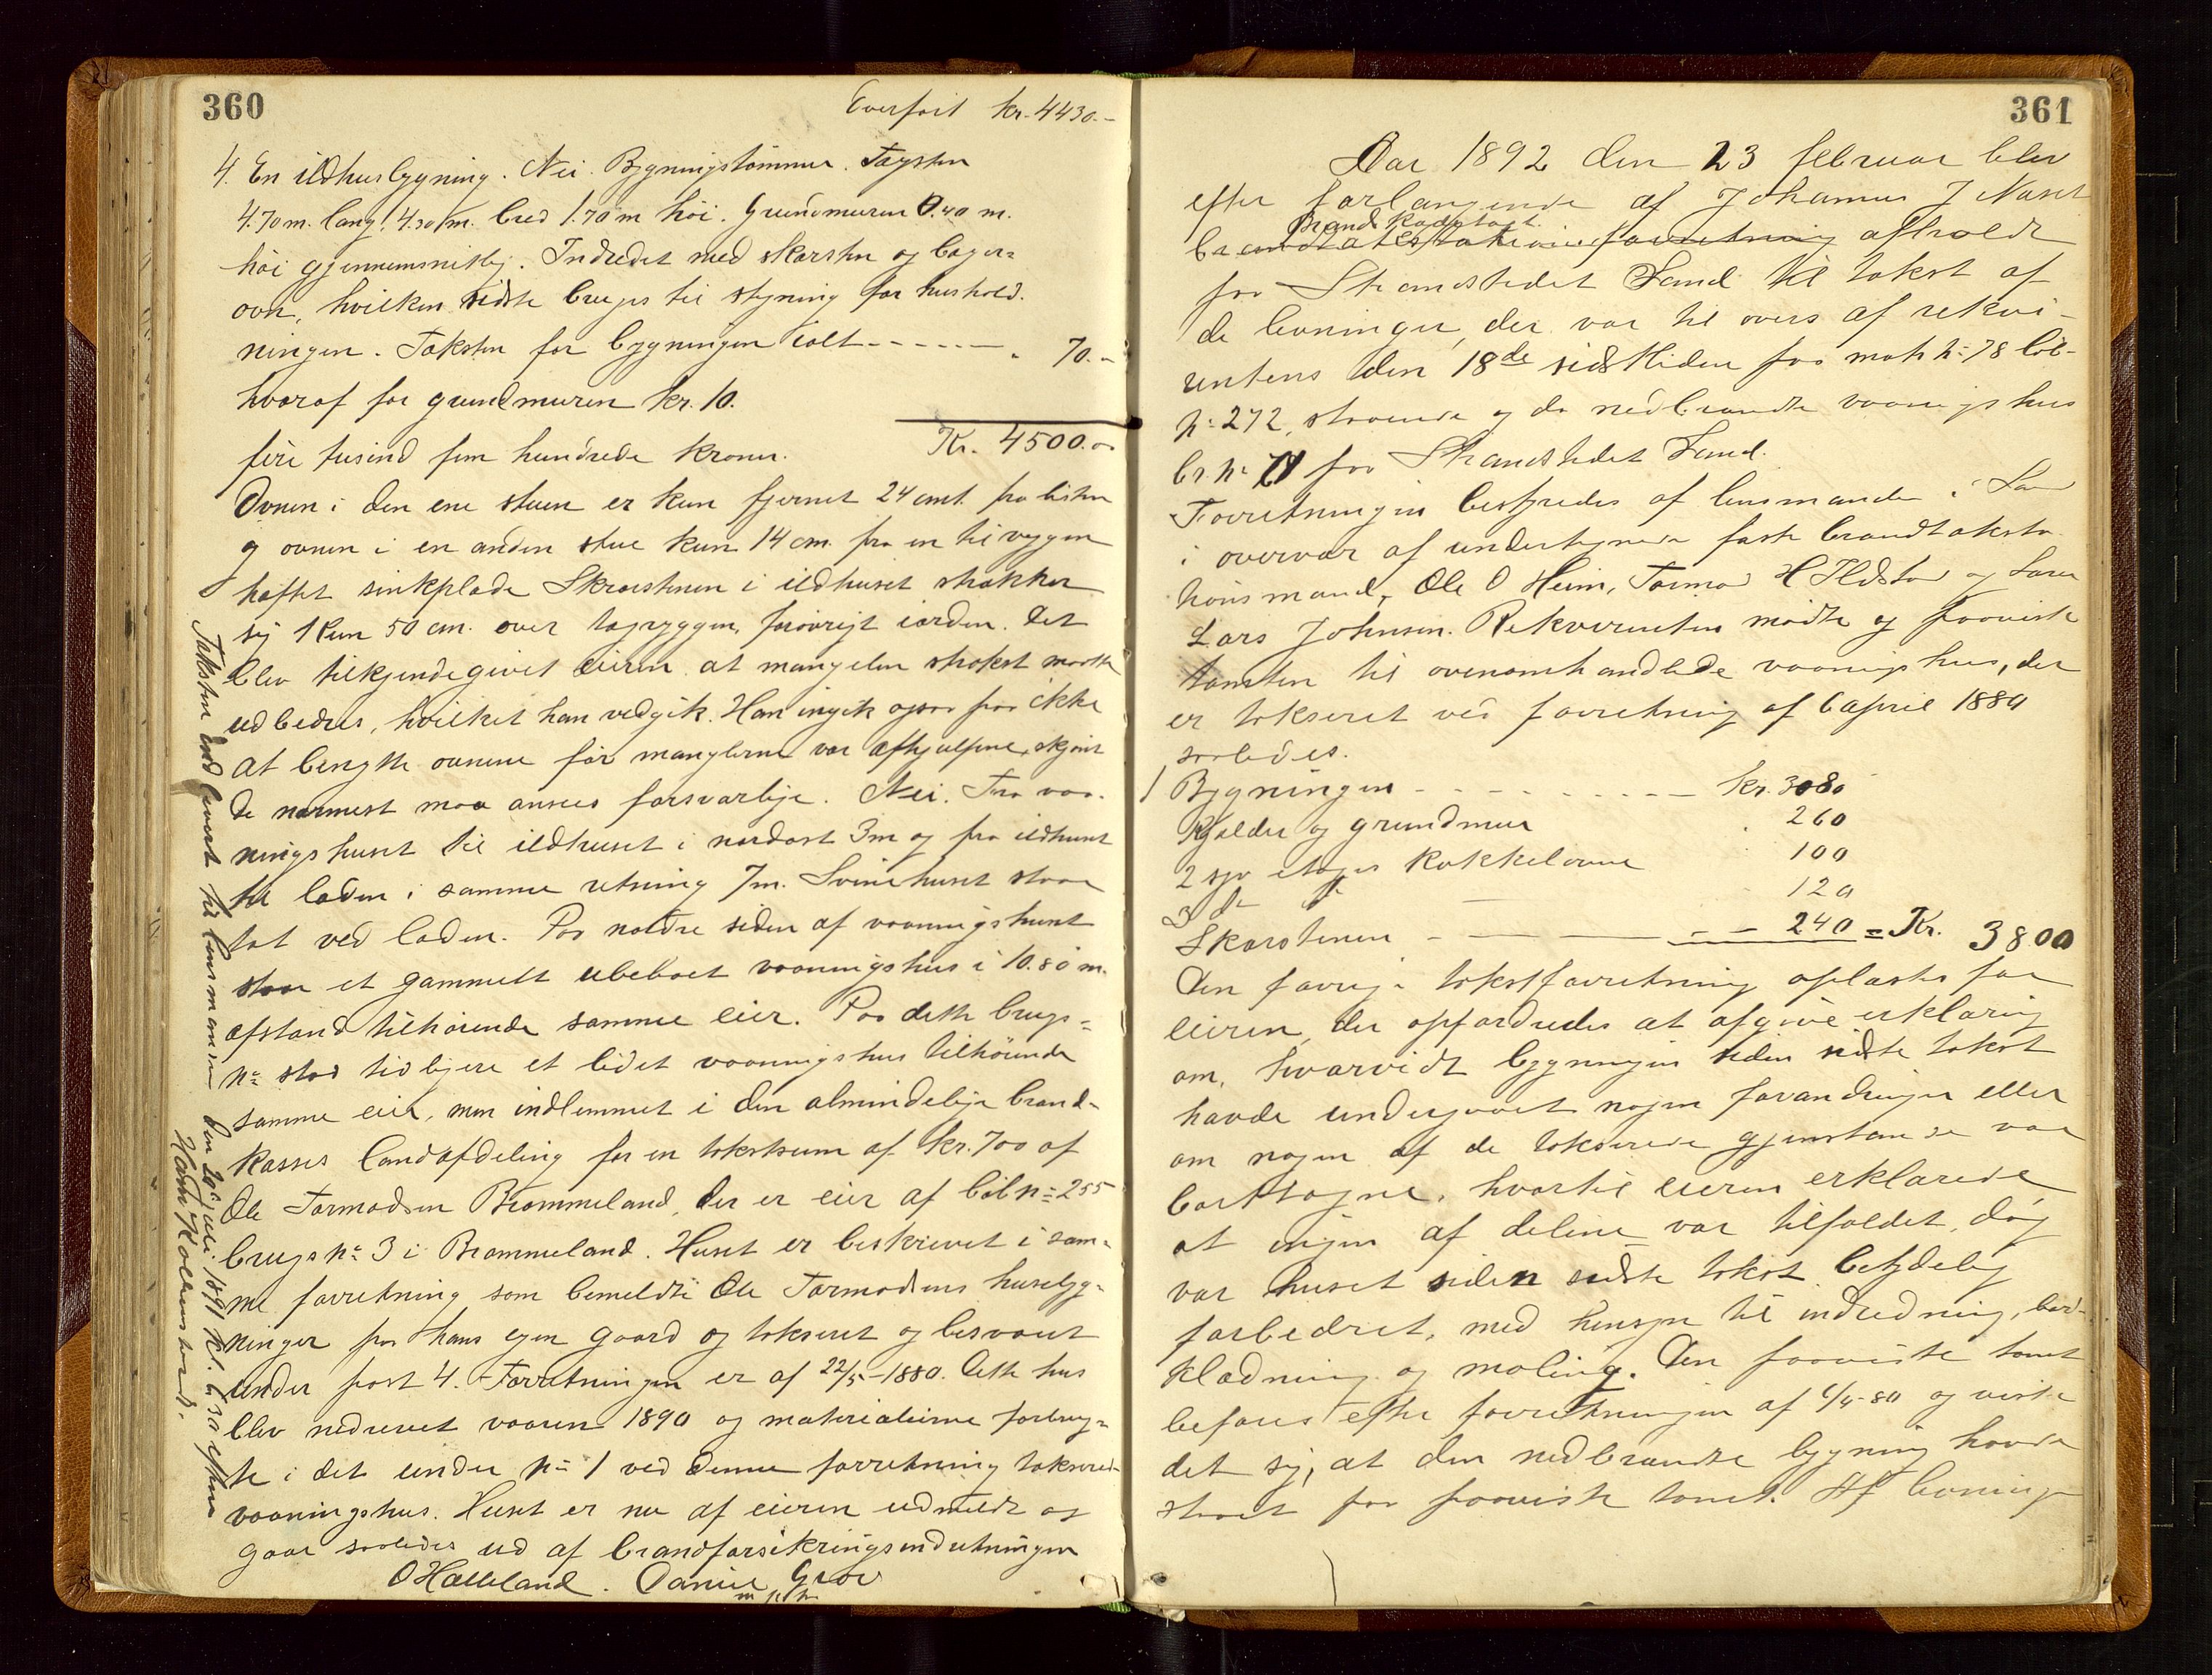 360
Overført kr. 4430.-
4. En ildhusbygning. Nei. Bygningstømmer. Tagsten
4.70 m. lang, 4.30 m. bred 1.70 m høi. Grundmuren 0.40 m.
høi gjennemsnitlig. Indredet med skorsten og bager-
ovn, hvilken sidste bruges til stegning for hushold-
ningen. Taksten for bygningen ialt - - - - - - " 70.-
hvoraf for grundmuren kr. 10.
fire tusind fem hundrede kroner. Kr. 4500.00
Ovnen i den ene stuen er kun fjernet 24 cmt. fra listen
og ovnen i en anden stue kun 14 cm. fra en til veggen
heftet sinkplade Skorstenen i ildhuset strækker
sig kun 50 cm. over tagryggen, forøvrigt iorden. Det
blev tilkjendegivet eieren at mangelen strakst maatte
udbedres, hvilket han vedgik. Han ingik ogsaa paa ikke
at benytte ovnene før manglerne var afhjulpne, skjønt
de nærmest maa ansees forsvarlige. Nei. Fra vaa-
ningshuset til ildhuset i nordost 3m og fra ildhuset
til laden i samme retning 7m. Svinehuset staar
tæt ved laden. Paa nordre siden af vaaningshuset
staar et gammelt ubeboet vaaningshus i 10.80 m.
afstand tilhørende samme eier. Paa dette brugs-
nr stod tidligere et lidet vaaningshus tilhørende
samme eier, men indlemmet i den almindelige brand-
kasses landafdeling for en takstsum af kr. 700 af
Ole Tormodsen Brommeland, der er eier af løb nr 255
brugs nr 3 i Brommeland. Huset er beskrevet i sam-
me forretning som bemeldte Ole Tormodsens husebyg-
ninger paa hans egen gaard og takseret og besvaret
under post 4. Forretningen er af 22/5-1880. Dette hus
blev nedrevet vaaren 1890 og materialerne forbrug-
te i det under nr 1 ved denne forretning takserede
vaaningshus. Huset er nu af eieren udmeldt og
gaar saaledes ud af brandforsikringsindretningen
O Hælleland. Daniel Grov
m p p
Taksten indleveret til lensmanden den 20 juli 1891 kl. 6 30 eften
361
Aar 1892 den 23 februar blev
efter forlangende af Johannes J Næset
Brandskadetakst
afholdt
for Strandstedet Sand til takst af
de levninger, der var til overs af rekvi-
rentens den 18de sidstleden paa matr. nr 78 løb-
nr 272, staaende og da nedbrændte vaaningshus
br. nr 71 paa Strandstedet Sand.
Forretningen bestyredes af lensmanden i Sand
i overvær af undertegnede faste brandtakst-
tionsmænd, Ole O Heim, Tormod H Ilstad og Lars
Lars Johnsen. Rekvirenten mødte og paaviste
tomten til ovenomhandlede vaaningshus, der
er takseret ved forretning af 6 april 1880
saaledes.
1 Bygningen - - - - - - - - - kr. 3080
Kjælder og grundmur " 260
2 syv etages kakkelovne " 100
3 do do — " 120
Skorstenen - — — - - 240 = Kr. 3800
Den forrige takstforretning oplæstes for
eieren, der opfordredes at afgive erklæring
om, hvorvidt bygningen siden sidste takst
havde undergaaet nogen forandringer eller
om nogen af de takserede gjenstande var
borttagne, hvortil eieren erklærede
at ingen af delene var tilfældet, dog
var huset siden sidste takst betydelig
forbedret, med hensyn til indredning, bord-
klædning og maling. Den paaviste tomt
befares efter forretningen af 6/4-80 og viste
det sig, at den nedbrændte bygning havde
staaet paa paaviste tomt. Af levninger